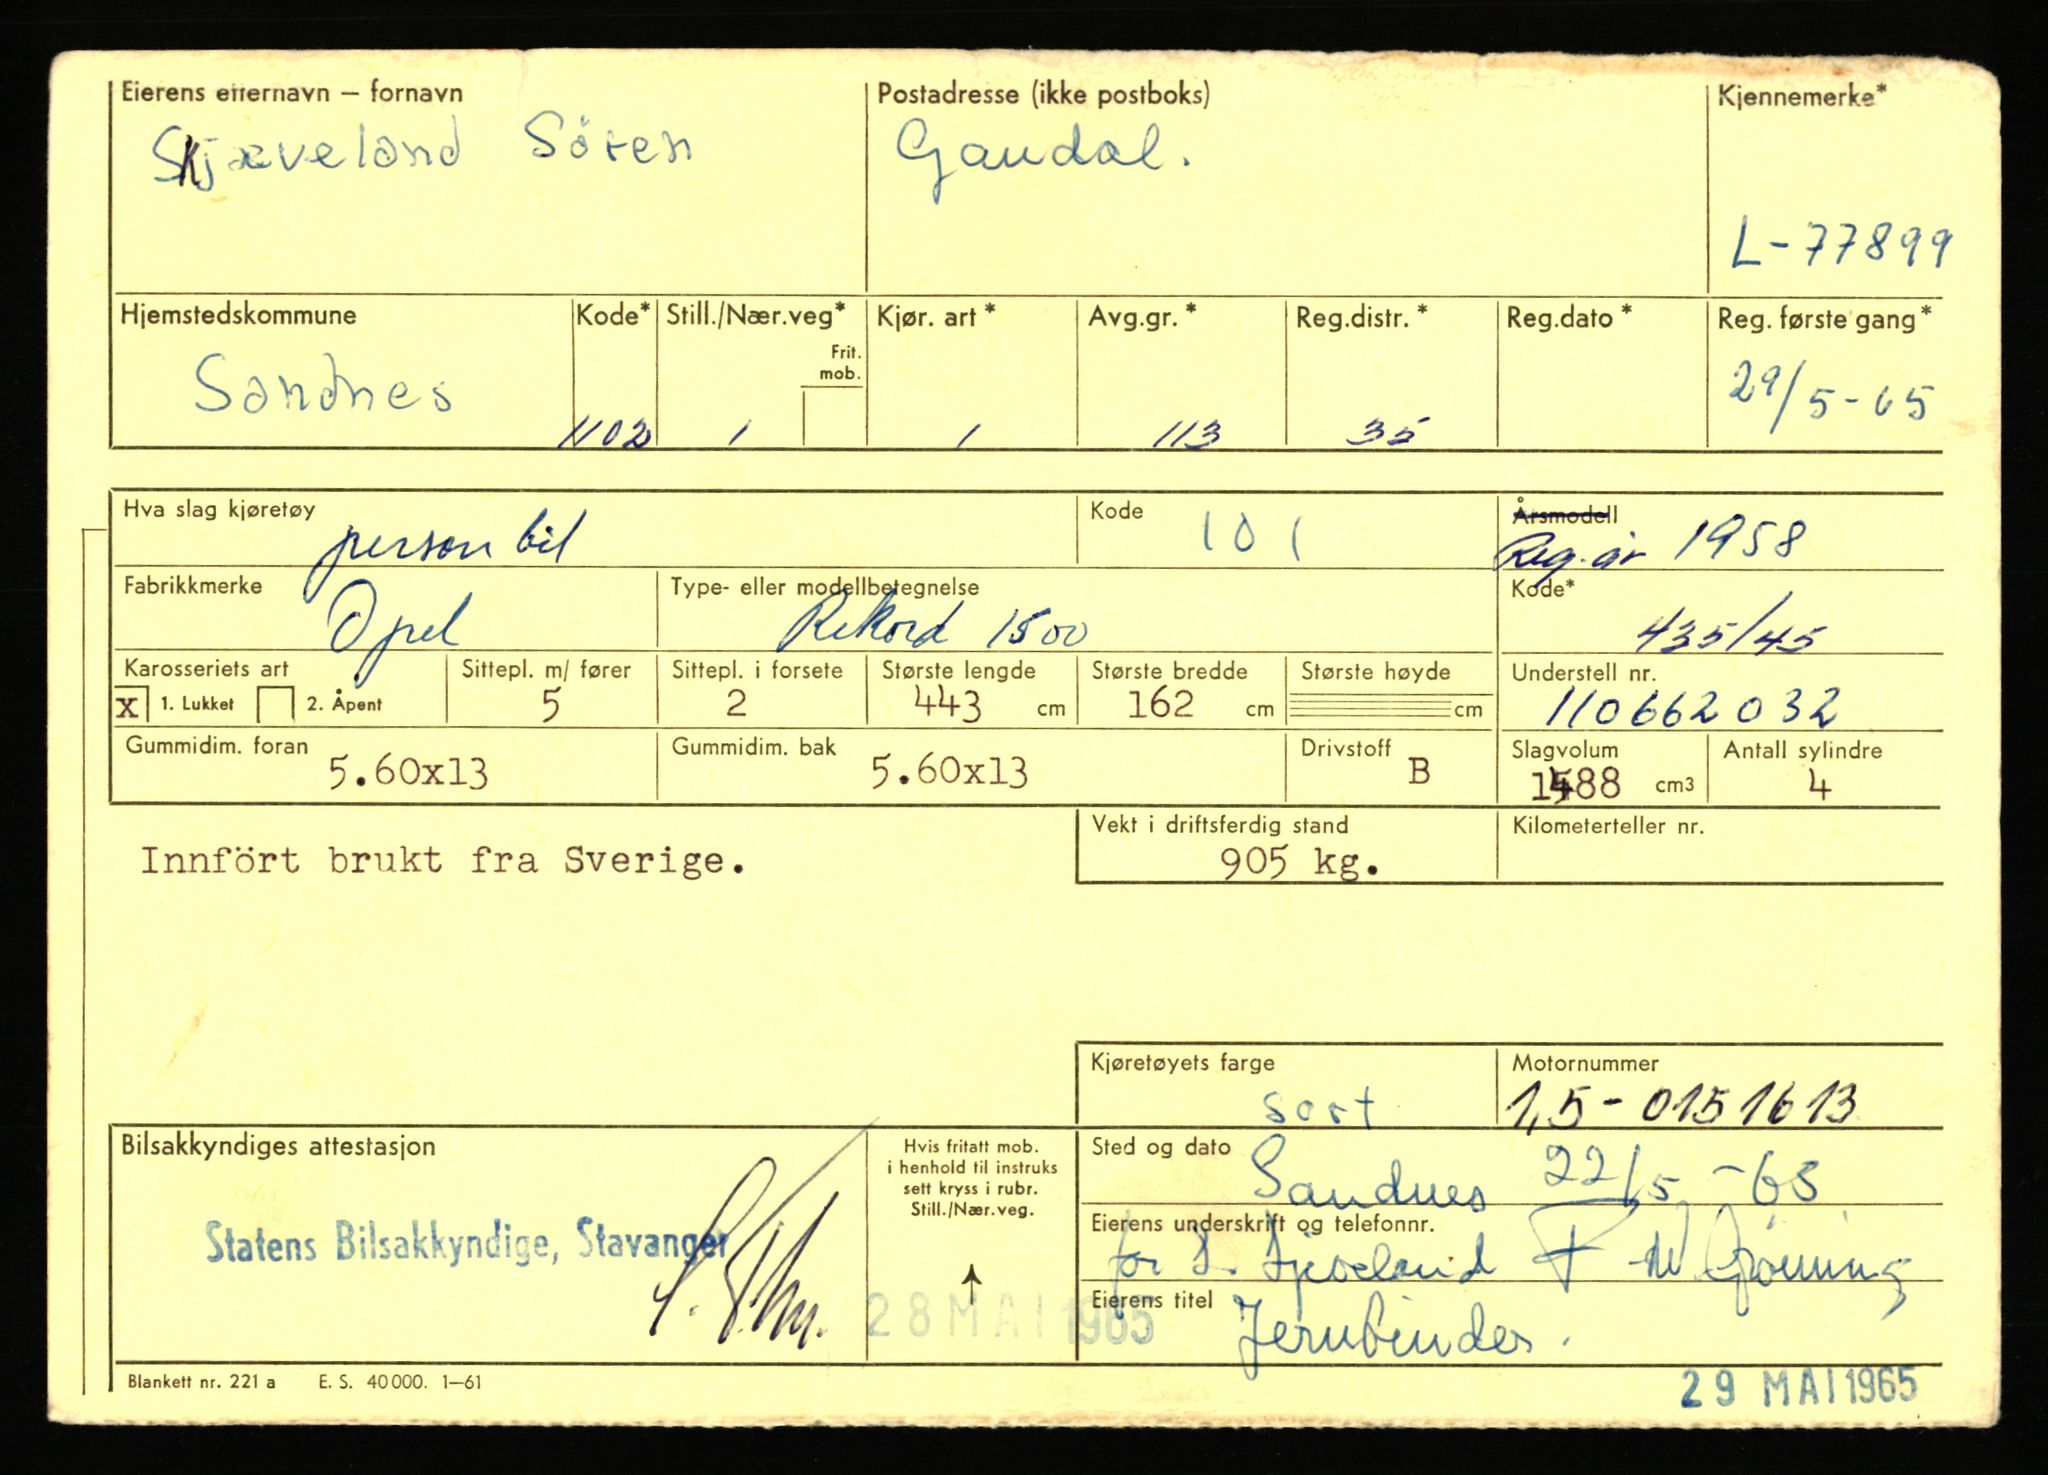 Eierens etternavn – fornavn
Skjæveland Sören
Postadresse (ikke postboks)
Gandal.
Kjennemerke*
L-77899
Hjemstedskommune
Sandnes
Kode*
1102
Still./Nær.veg*
Frit. mob.
1
Kjør. art*
1
Avg.gr.*
113
Reg.distr.*
35
Reg.dato*
Reg. første gang*
29/5-65
Hva slag kjøretøy
personbil
Kode
101
Årsmodell
Reg.år 1958
Fabrikkmerke
Opel
Type- eller modellbetegnelse
Rekord 1500
Kode*
435/45
Karosseriets art
x 1. Lukket 2. Åpent
Sittepl. m/ fører
5
Sittepl. i forsete
2
Største lengde
443 cm
Største bredde
162 cm
Største høyde
cm
Understell nr.
110662032
Gummidim. foran
5.60x13
Gummidim. bak
5.60x13
Drivstoff
B
Slagvolum
1488 cm3
Antall sylindre
4
Innfört brukt fra Sverige.
Vekt i driftsferdig stand
905 kg.
Kilometerteller nr.
Kjøretøyets farge
sort
Motornummer
1,5-0151613
Bilsakkyndiges attestasjon
Statens Bilsakkyndige, Stavanger
28 MAI 1965
Hvis fritatt mob.
i henhold til instruks
sett kryss i rubr.
Still./Nær.veg.
Sted og dato
Sandnes 22/5 -65
Eierens underskrift og telefonnr.
for S. Skjæveland
Eierens titel
Jernbinder.
Blankett nr. 221 a E. S. 40 000. 1–61
29 MAI 1965